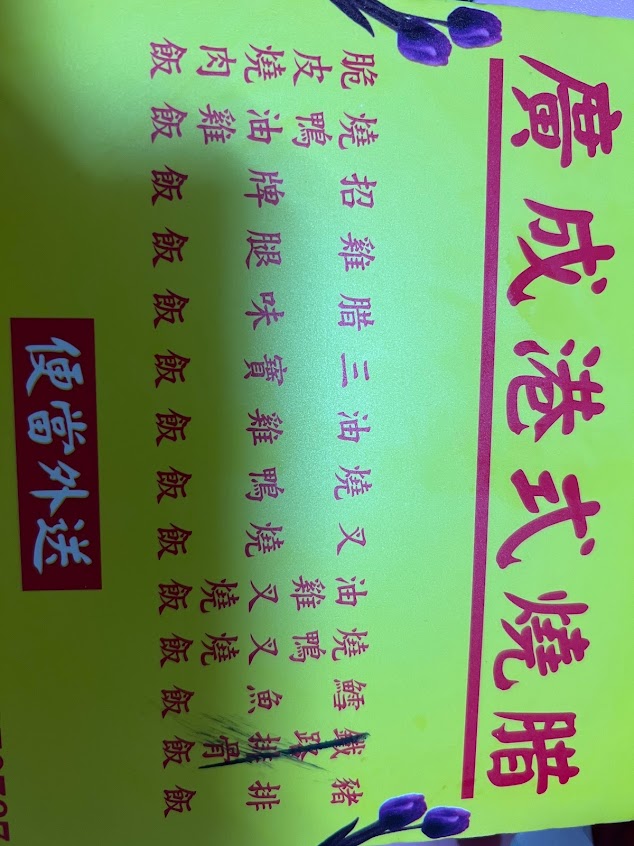 廣成港式燒腊
豬排飯
鐵路排骨飯
鱈魚飯
燒鴨叉燒飯
油雞叉燒飯
叉燒飯
燒鴨飯
油雞飯
三寶飯
腊味飯
雞腿飯
招牌飯
燒鴨油雞飯
脆皮燒肉飯
便當外送